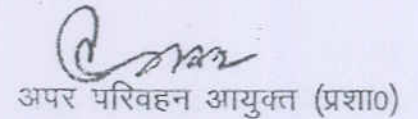 अपर परिवहन आयुक्त (प्रशा०)